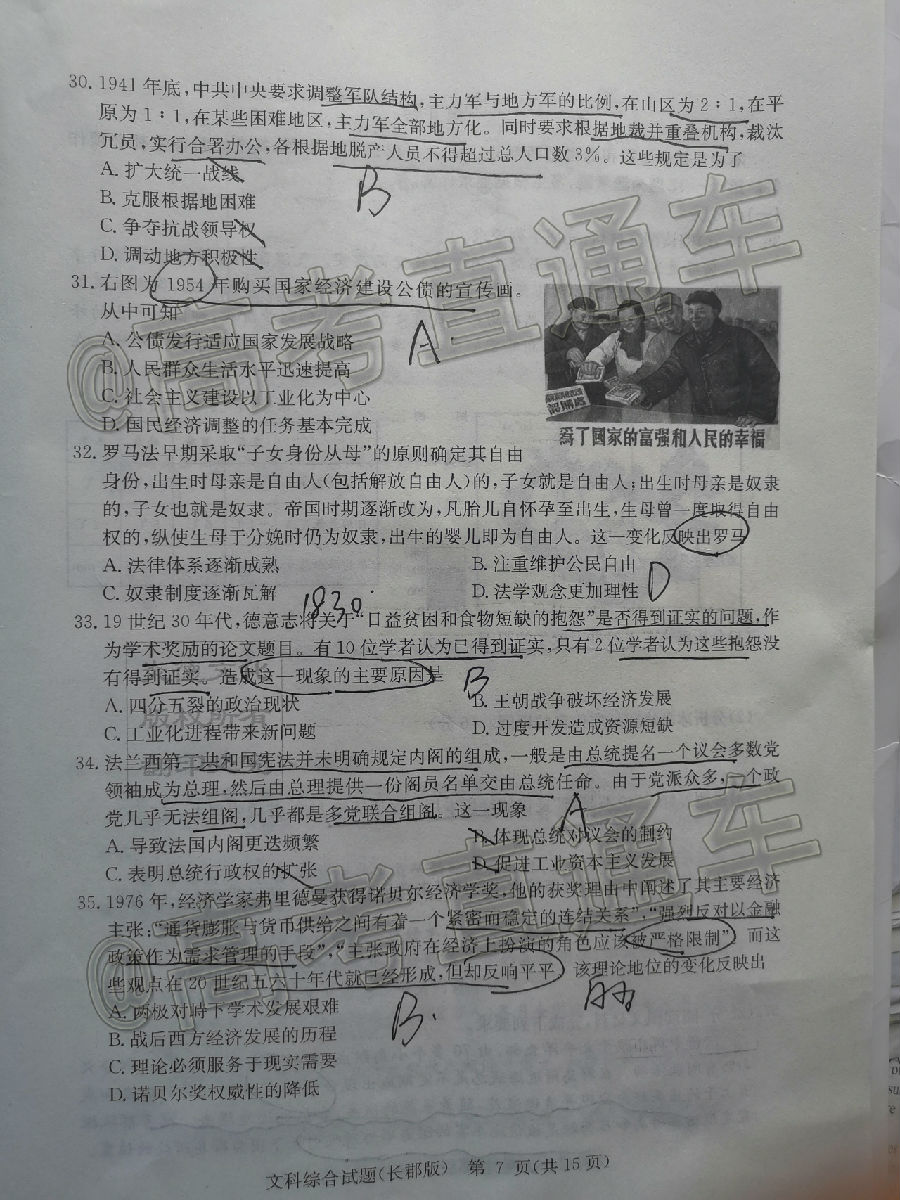 30. 1941年底,中共中央要求调整军队结构,主力军与地方军的比例,在山区为2:1,在平
原为1:1,在某些困难地区,主力军全部地方化。同时要求根据地裁并重叠机构,裁汰
冗员,实行合署办公,各根据地脱产人员不得超过总人口数3%。这些规定是为了
A. 扩大统一战线
B. 克服根据地困难
B
C. 争夺抗战领导权
D. 调动地方积极性
31. 右图为1954年购买国家经济建设公债的宣传画。
从中可知
A
A. 公债发行适应国家发展战略
B. 人民群众生活水平迅速提高
C. 社会主义建设以工业化为中心
D. 国民经济调整的任务基本完成
为了国家的富强和人民的幸福
32. 罗马法早期采取“子女身份从母”的原则确定其自由
身份,出生时母亲是自由人(包括解放自由人)的,子女就是自由人;出生时母亲是奴隶
的,子女也就是奴隶。帝国时期逐渐改为,凡胎儿自怀孕至出生,生母曾一度取得自由
权的,纵使生母于分娩时仍为奴隶,出生的婴儿即为自由人。这一变化反映出罗马
A. 法律体系逐渐成熟 B. 注重维护公民自由
C. 奴隶制度逐渐瓦解 D. 法学观念更加理性
D
1830
33. 19世纪30年代,德意志将关于“日益贫困和食物短缺的抱怨”是否得到证实的问题,作
为学术奖励的论文题目。有10位学者认为已得到证实,只有2位学者认为这些抱怨没
有得到证实。造成这一现象的主要原因是
B
A. 四分五裂的政治现状 B. 王朝战争破坏经济发展
C. 工业化进程带来新问题 D. 过度开发造成资源短缺
34. 法兰西第一共和国宪法并未明确规定内阁的组成,一般是由总统提名一个议会多数党
领袖成为总理,然后由总理提供一份阁员名单交由总统任命。由于党派众多,一个政
党几乎无法组阁,几乎都是多党联合组阁。这一现象
A
A. 导致法国内阁更迭频繁 B. 体现总统对议会的制约
C. 表明总统行政权的扩张 D. 促进工业资本主义发展
35. 1976年,经济学家弗里德曼获得诺贝尔经济学奖,他的获奖理由中阐述了其主要经济
主张:“通货膨胀与货币供给之间有着一个紧密而稳定的连结关系”,“强烈反对以金融
政策作为需求管理的手段”,“主张政府在经济上扮演的角色应该被严格限制”。而这
些观点在20世纪五六十年代就已经形成,但却反响平平。该理论地位的变化反映出
A. 两极对峙下学术发展艰难
B.
B. 战后西方经济发展的历程
C. 理论必须服务于现实需要
D. 诺贝尔奖权威性的降低
文科综合试题(长郡版) 第 7 页(共15页)
@高考直通车
@高考直通车